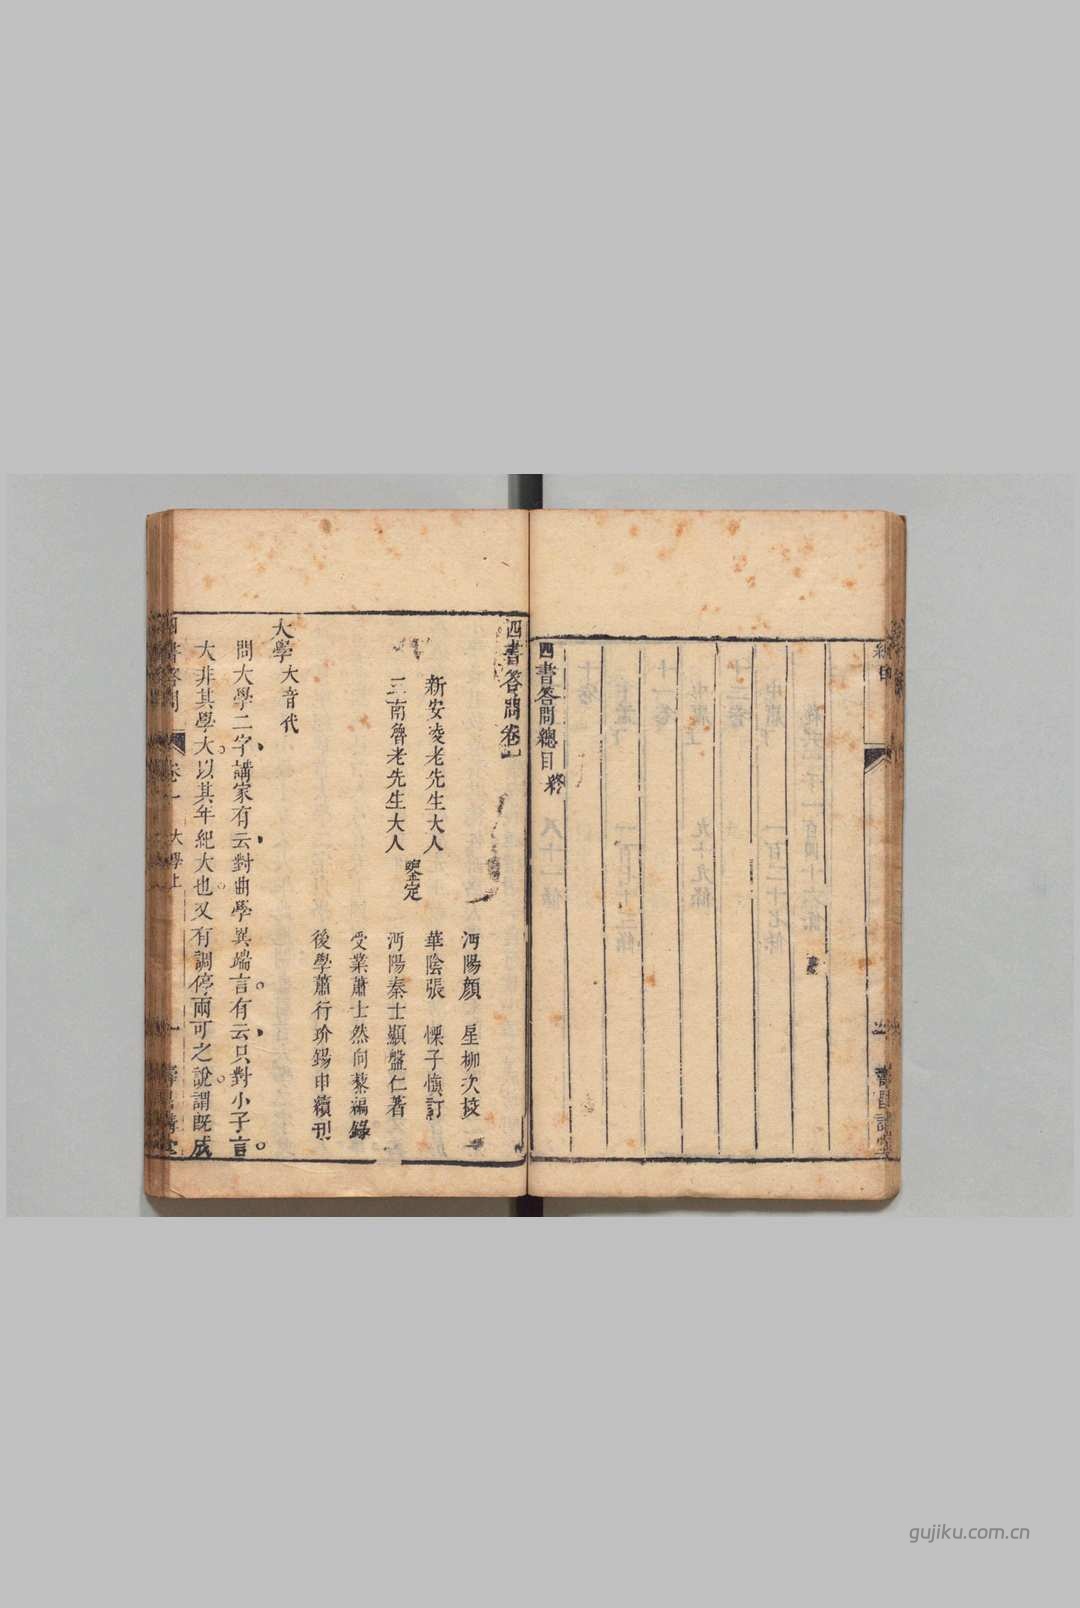 四書答問總目終
四書答問卷一
新安凌老先生大人
三南魯老先生大人
鑒定
沔陽顏 星柳次校
華陰張 慄子慎訂
沔陽秦士顯盤仁著
受業蕭士然向藜編錄
後學蕭行玠錫申續刊
大學大音代
問大學二字講家有云對曲學異端言有云只對小子言
大非其學大以其年紀大也又有調停兩可之說謂既成
四書答問 卷一 大學上 一
gujiku.com.cn